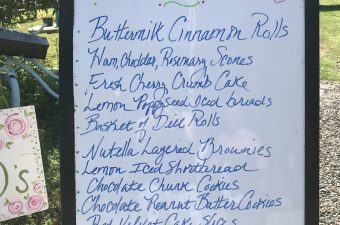 Buttermilk Cinnamon Rolls
Ham, Cheddar, Rosemary Scones
Fresh Cherry Crumb Cake
Lemon Poppyseed Iced breads
Basket of Dill Rolls
Nutella Layered Brownies
Lemon Iced Shortbread
Chocolate Chunk Cookies
Chocolate Peanut Butter Cookies
Red Velvet Cake Slices
)'s